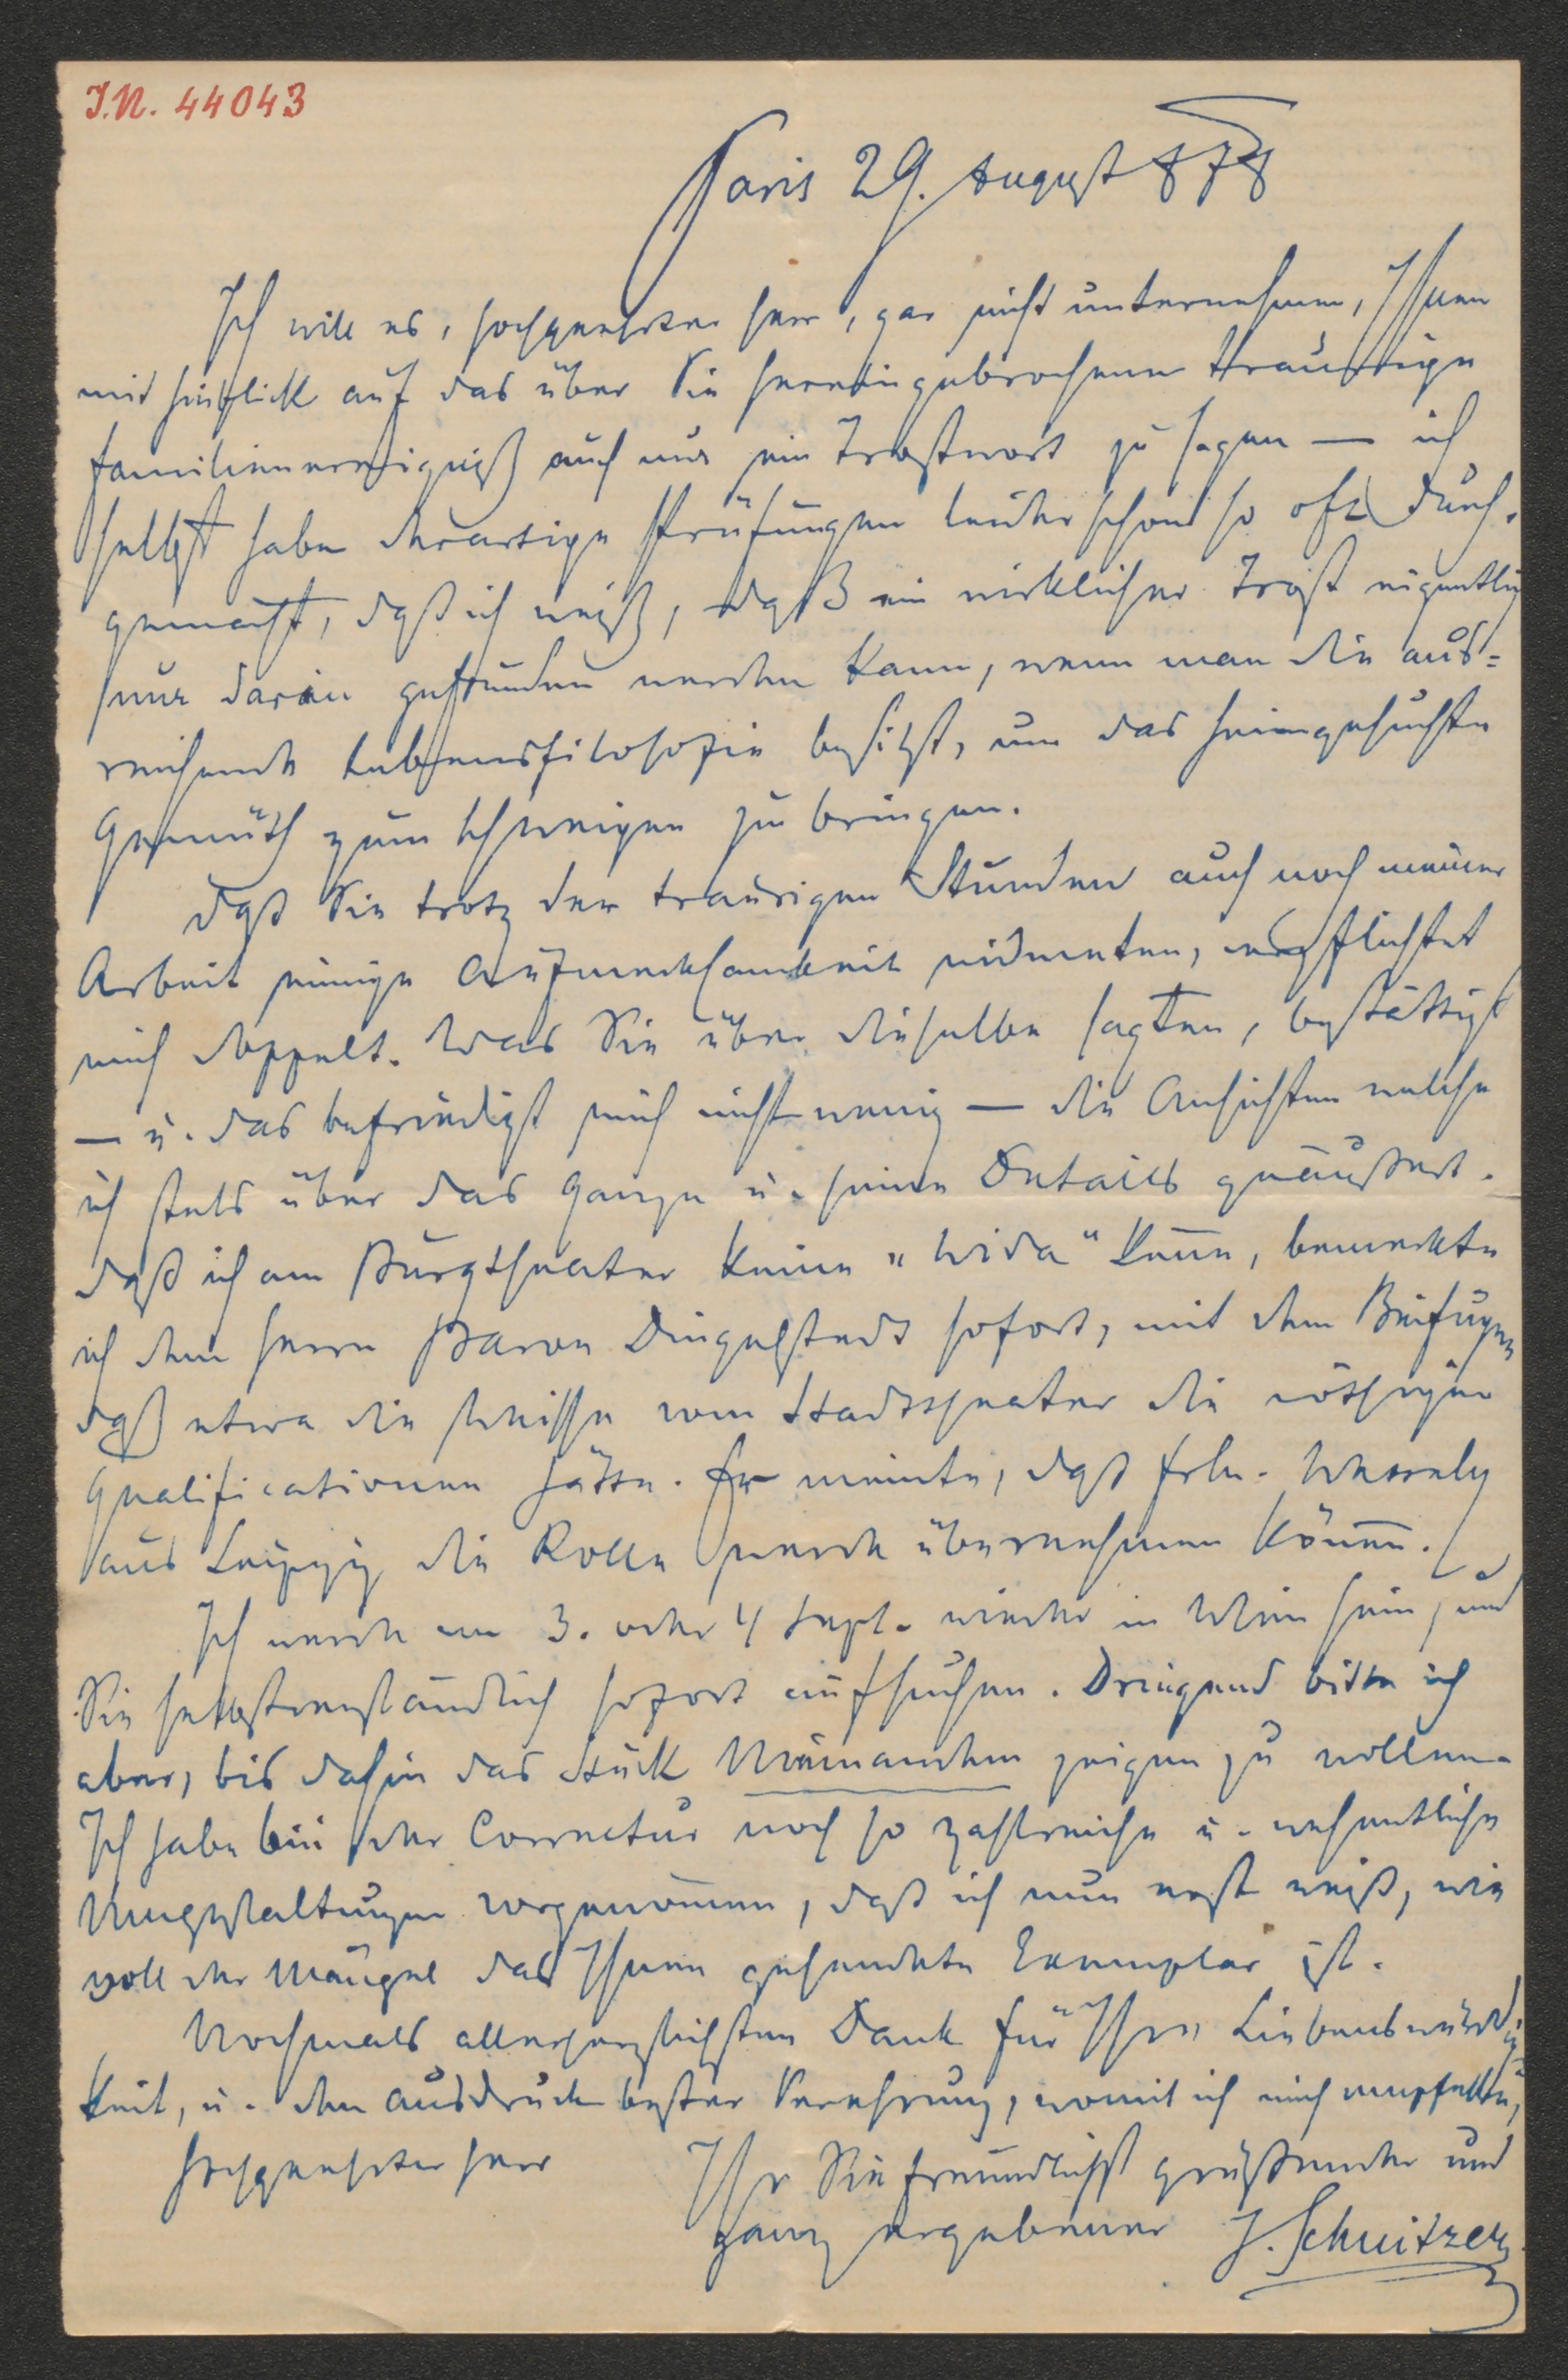 J.N. 44043
Paris 29. August 878
Ich will es, hochgeehrter Herr, gar nicht unternehmen, Ihnen
mit Hinblick auf das über Sie hereingebrochene traurige
Familienereigniß auch nur ein Trostwort zu sagen — ich
selbst habe derartige Prüfungen leider schon so oft durch-
gemacht, daß ich weiß, daß ein wirklicher Trost eigentlich
nur darin gefunden werden kann, wenn man die aus-
reichende Lebensfilosofie besitzt, um das heimgesuchte
Gemüth zum Schweigen zu bringen.
Daß Sie trotz der traurigen Stunden auch noch meiner
Arbeit einige Aufmerksamkeit widmeten, verpflichtet
mich doppelt. Was Sie über dieselbe sagten, bestättigt
— u. das befriedigt mich nicht wenig — die Ansichten welche
ich stets über das Ganze u. seine Details geäußert.
Daß ich am Burgtheater keine "Wida" kenne, bemerkte
ich dem Herrn Baron Dingelstedt sofort, mit dem Beifügen
daß etwa die Weisse vom Stadttheater die nöthigen
Qualificationen hätte. Er meinte, daß Frln. Wessely
aus Leipzig die Rolle werde übernehmen können.
Ich werde am 3. oder 4 Sept. wieder in Wien sein, und
Sie selbstverständlich sofort aufsuchen. Dringend bitte ich
aber, bis dahin das Stück Niemandem zeigen zu wollen.
Ich habe bei der Correctur noch so zahlreiche u. wesentliche
Umgestaltungen vorgenommen, daß ich nun erst weiß, wie
voll der Mängel das Ihnen gesendete Exemplar ist.
Nochmals allerherzlichsten Dank für Ihre Liebenswürdig
keit, u. den Ausdruck bester Verehrung, womit ich mich empfehle,
hochgeehrter Herr
Ihr Sie freundlichst grüßender und
ganz ergebener J. Schnitzer